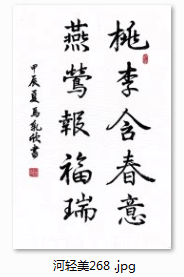 桃李含春意
燕鶯報福瑞
甲辰夏馬乳欣書
河轻美268 .jpg